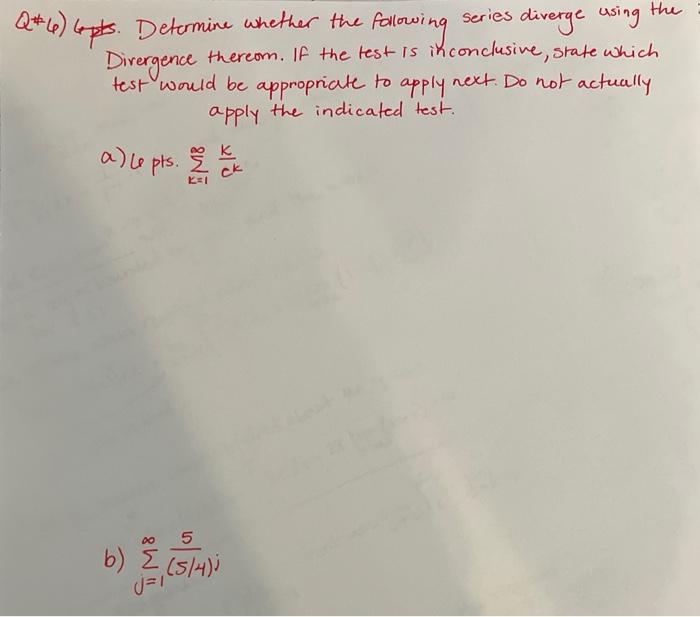 Q#6) 6 pts. Determine whether the following series diverge using the
Divergence thereom. If the test is inconclusive, state which
test would be appropriate to apply next. Do not actually
apply the indicated test.
a) 6 pts. ∞ Σ k=1 k/ek
b) ∞ Σ j=1 5/(5/4)j